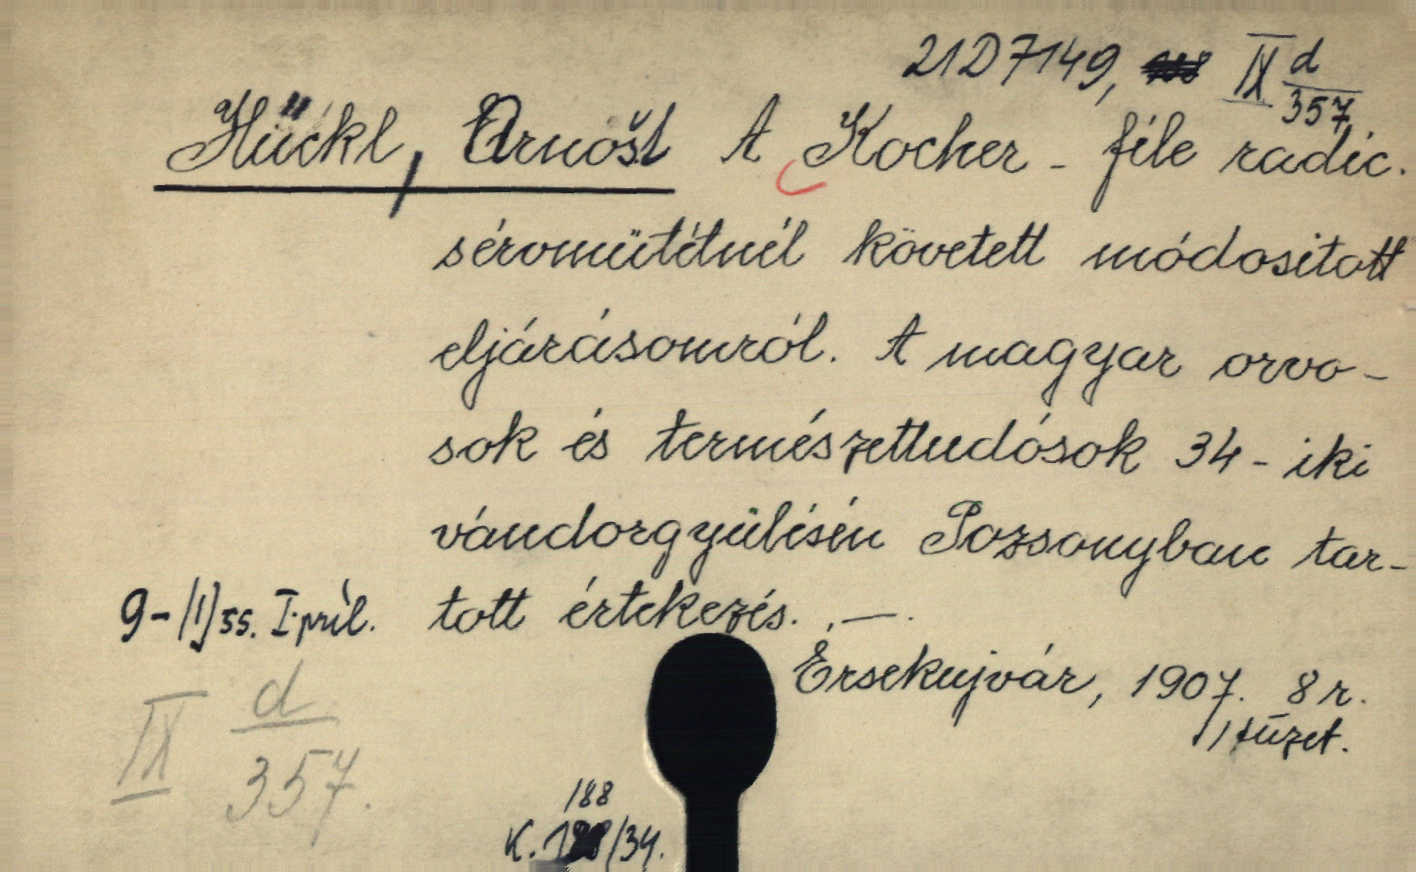 21D7149, IX d/357
Hückl, Arnošt A Kocher-féle radic.
séromütétnél követett módositott
eljárásomról. A magyar orvo-
sok és természettudósok 34-iki
vándorgyülésén Pozsonyban tar-
tott értekezés. . — .
9-/1/55. I. pril.
Érsekujvár, 1907. 8 r.
1 füzet.
IX d/357.
188
K. /34.